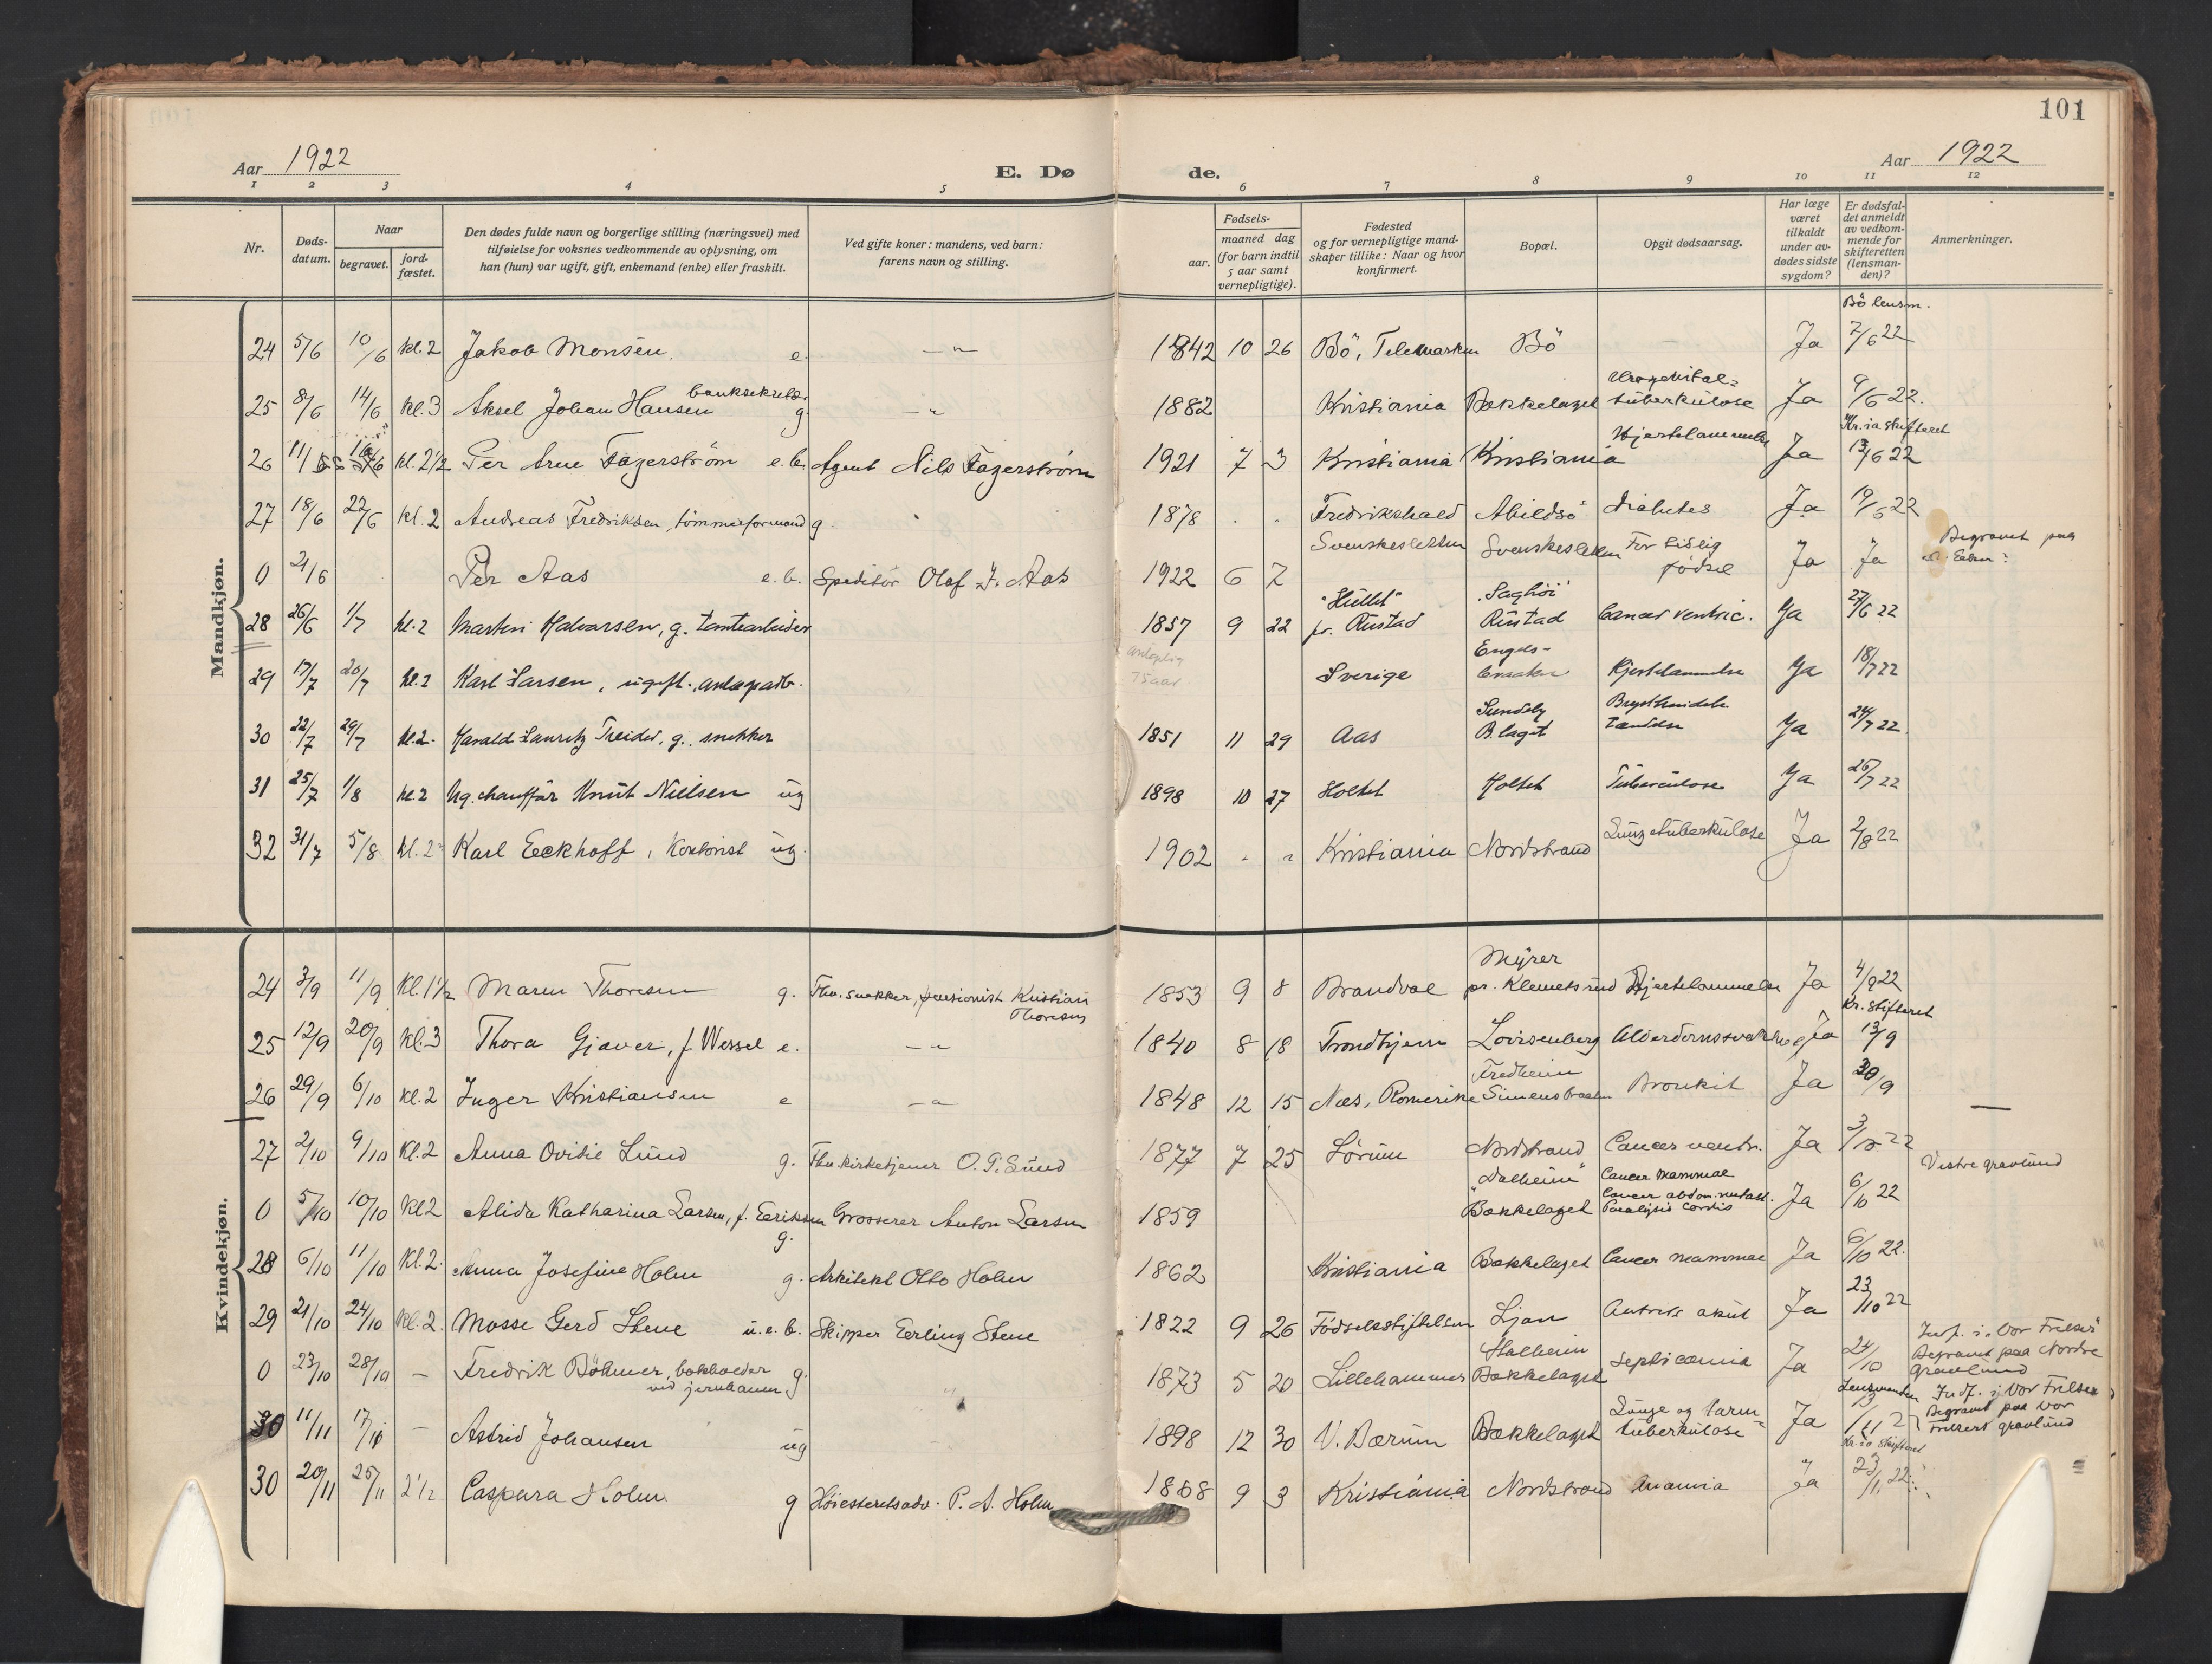 101
Aar 1922 E. Dø de. Aar 1922
1 2 3 4 5 6 7 8 9 10 11 12
Nr. Døds-datum. Naar begravet. jord-fæstet. Den dødes fulde navn og borgerlige stilling (næringsvei) med tilføielse for voksnes vedkommende av oplysning, om han (hun) var ugift, gift, enkemand (enke) eller fraskilt. Ved gifte koner: mandens, ved barn: farens navn og stilling. Fødsels- aar. maaned dag (for barn indtil 5 aar samt vernepligtige). Fødested og for vernepligtige mand-skaper tillike: Naar og hvor konfirmert. Bopæl. Opgit dødsaarsag. Har læge været tilkaldt under av-dødes sidste sygdom? Er dødsfal-det anmeldt av vedkom-mende for skifteretten (lensman-den)? Anmerkninger.
Mandkjøn.
24 5/6 10/6 kl. 2 Jakob Monsen. e. — " — 1842 10 26 Bö, Telemarken Bö — Ja Bö lensm. 7/6 22
25 8/6 14/6 kl. 3 Aksel Johan Hansen banksekretær g. — " — 1882 Kristiania Bækkelaget Urogenital-tuberkulose Ja 9/6 22.
26 11/6 16/6 kl. 2 1/2 Per Arne Fagerström e. b. Agent Nils Fagerström 1921 7 3 Kristiania Kristiania Hjertelammelse Ja Kr.ia skifteret 13/6 22
27 18/6 22/6 kl. 2 Andreas Fredriksen, tömmerformand g. 1878 Fredrikshald Abildsö Diabetes Ja 19/6 22
0 21/6 Per Aas e. b. Speditör Olaf F. Aas 1922 6 7 Svenskesletten Svenskesletten For tidlig fødsel Ja Ja Begravet paa
28 26/6 1/7 kl. 2 Martin Halvorsen, g. tomtearbeider 1857 9 22 "Hullet" pr. Rustad Saghöi Rustad Cancer ventric. Ja 27/6 22
29 17/7 20/7 kl. 2 Karl Larsen, ugift. anlægsarb. antagelig 75 aar Sverige Engels-braaten Hjertelammelse Ja 18/7 22
30 22/7 29/7 kl. 2. Harald Lauritz Treider, g. snekker 1851 11 29 Aas Sundby B.laget Ja 24/7 22.
31 25/7 1/8 kl. 2 Ug. chauffør Knut Nielsen ug 1898 10 27 Holtet Holtet Tuberculose Ja 26/7 22
32 31/7 5/8 kl. 2 Karl Eeckhoff, Kontorist ug. 1902 Kristiania Nordstrand Lungetuberkulose Ja 2/8 22
Kvindekjøn.
24 3/9 11/9 Kl. 1 1/2 Maren Thoresen g. Fhv. snekker, pensionist Kristian Thoresen 1853 9 8 Brandval Myrer pr. Klemetsrud Hjertelammelse Ja 4/9 22
25 12/9 20/9 Kl. 3 Thora Gjæver, f. Wessel e. — " — 1840 8 18 Trondhjem Lovisenberg Alderdomssvakhet Ja Kr. skifteret 13/9
26 29/9 6/10 kl. 2 Inger Kristiansen e — " — 1848 12 15 Næs, Romerike Fredheim Simensbraaten Bronkit Ja 30/9 —
27 2/10 9/10 Kl. 2 Anna Ovidie Lund g. Fhv. kirketjener O. P. Lund 1877 7 25 Sörum Nordstrand Cancer ventr. Ja 3/10 22
0 5/10 10/10 Kl 2 Alida Katharina Larsen, f. Eeriksen g. Grosserer Anton Larsen 1859 "Dalheim" Bækkelaget Cancer mammae Cancer abdom. metast. Paralysis cordis Ja 6/10 22 Vestre gravlund
28 6/10 11/10 Kl. 2. Anna Josefine Holm g. Arkitekt Otto Holm 1862 Kristiania Bækkelaget Cancer mammae Ja 6/10 22.
29 21/10 24/10 Kl. 2. Mosse Gerd Stene u. e. b. Skipper Eerling Stene 1822 9 26 Fødselsstiftelsen Ljan akut Ja 23/10 22
0 23/10 28/10 — Fredrik Böhmer, bokholder ved jernbanen g. 1873 5 20 Lillehammer Stalheim Bækkelaget Septicæmia Ja 24/10 Indf. i "Vor Frelser" Begravet paa Nordre Gravlund
30 11/11 17/11 — Astrid Johansen ug 1898 12 30 V. Bærum Bækkelaget Lunge og tarm-tuberkulose Ja Lensmanden 13/11 2 Indf. i Vor Frelser Begravet paa Vor Frelsers gravlund
30 20/11 25/11 2 1/2 Caspara Holm g Höiesteretsadv. P. A. Holm 1868 9 3 Kristiania Nordstrand Anæmia Ja Kr.ia skifteret 23/11 22.